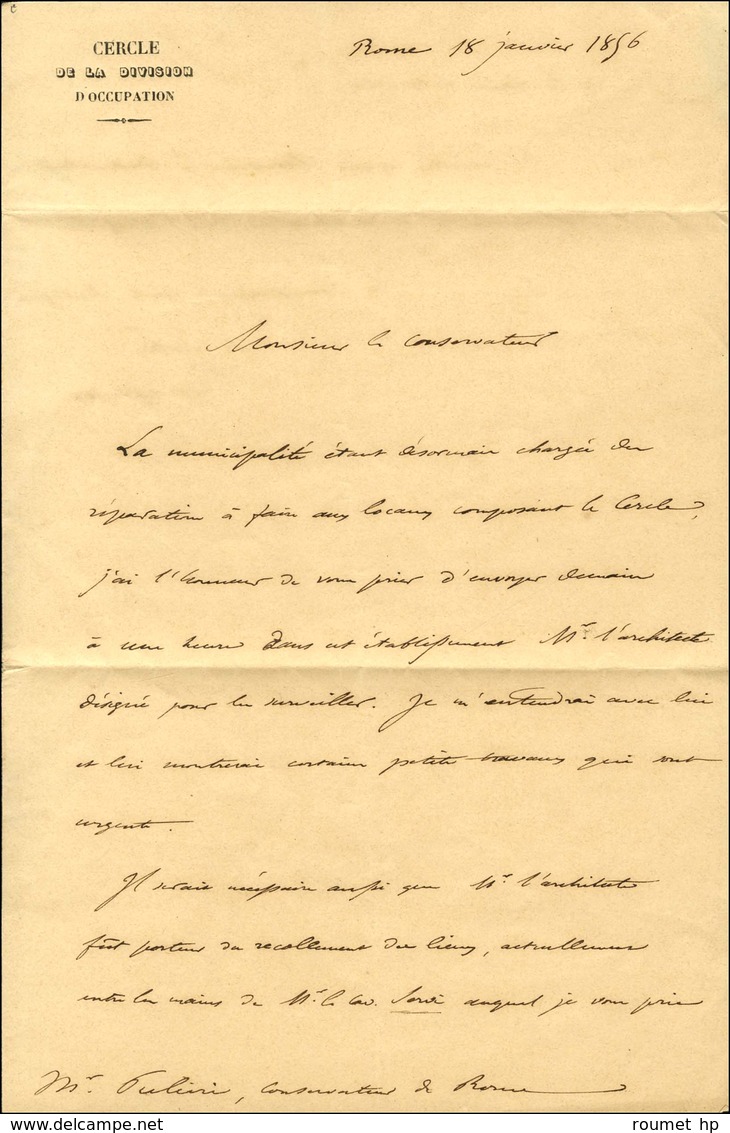 CERCLE
DE LA DIVISION
D'OCCUPATION
Rome 18 janvier 1856
Monsieur le Conservateur
La municipalité étant désormais chargée des
réparations à faire aux locaux composant le Cercle,
j'ai l'honneur de vous prier d'envoyer demain
à une heure dans cet établissement Mr. l'architecte
désigné pour les surveiller. Je m'entendrai avec lui
et lui montrerai certains petits travaux qui sont
urgents.
Il serait nécessaire aussi que Mr. l'architecte
fût porteur du recollement des lieux, actuellement
entre les mains de Mr. le Cav. auquel je vous prie
Mr. conservateur de Rome
roumet hp